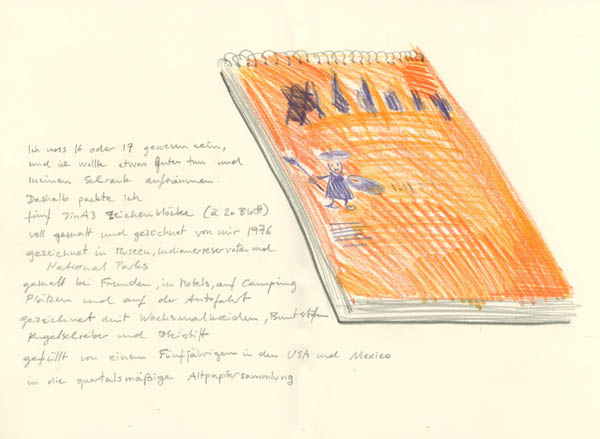 Ich muss 16 oder 17 gewesen sein,
und ich wollte etwas Gutes tun und
meinen Schrank aufräumen.
Deshalb packte ich
fünf DinA3 Zeichenblöcke (à 20 Blatt)
voll gemalt und gezeichnet von mir 1976
gezeichnet in Museen, Indianerreservaten und
National Parks
gemalt bei Freunden, in Motels, auf Camping
Plätzen und auf der Autofahrt
gezeichnet mit Wachsmalkreiden, Buntstiften
Kugelschreiber und Bleistift
gefüllt von einem Fünfjährigen in den USA und Mexico
in die quartalsmäßige Altpapiersammlung.